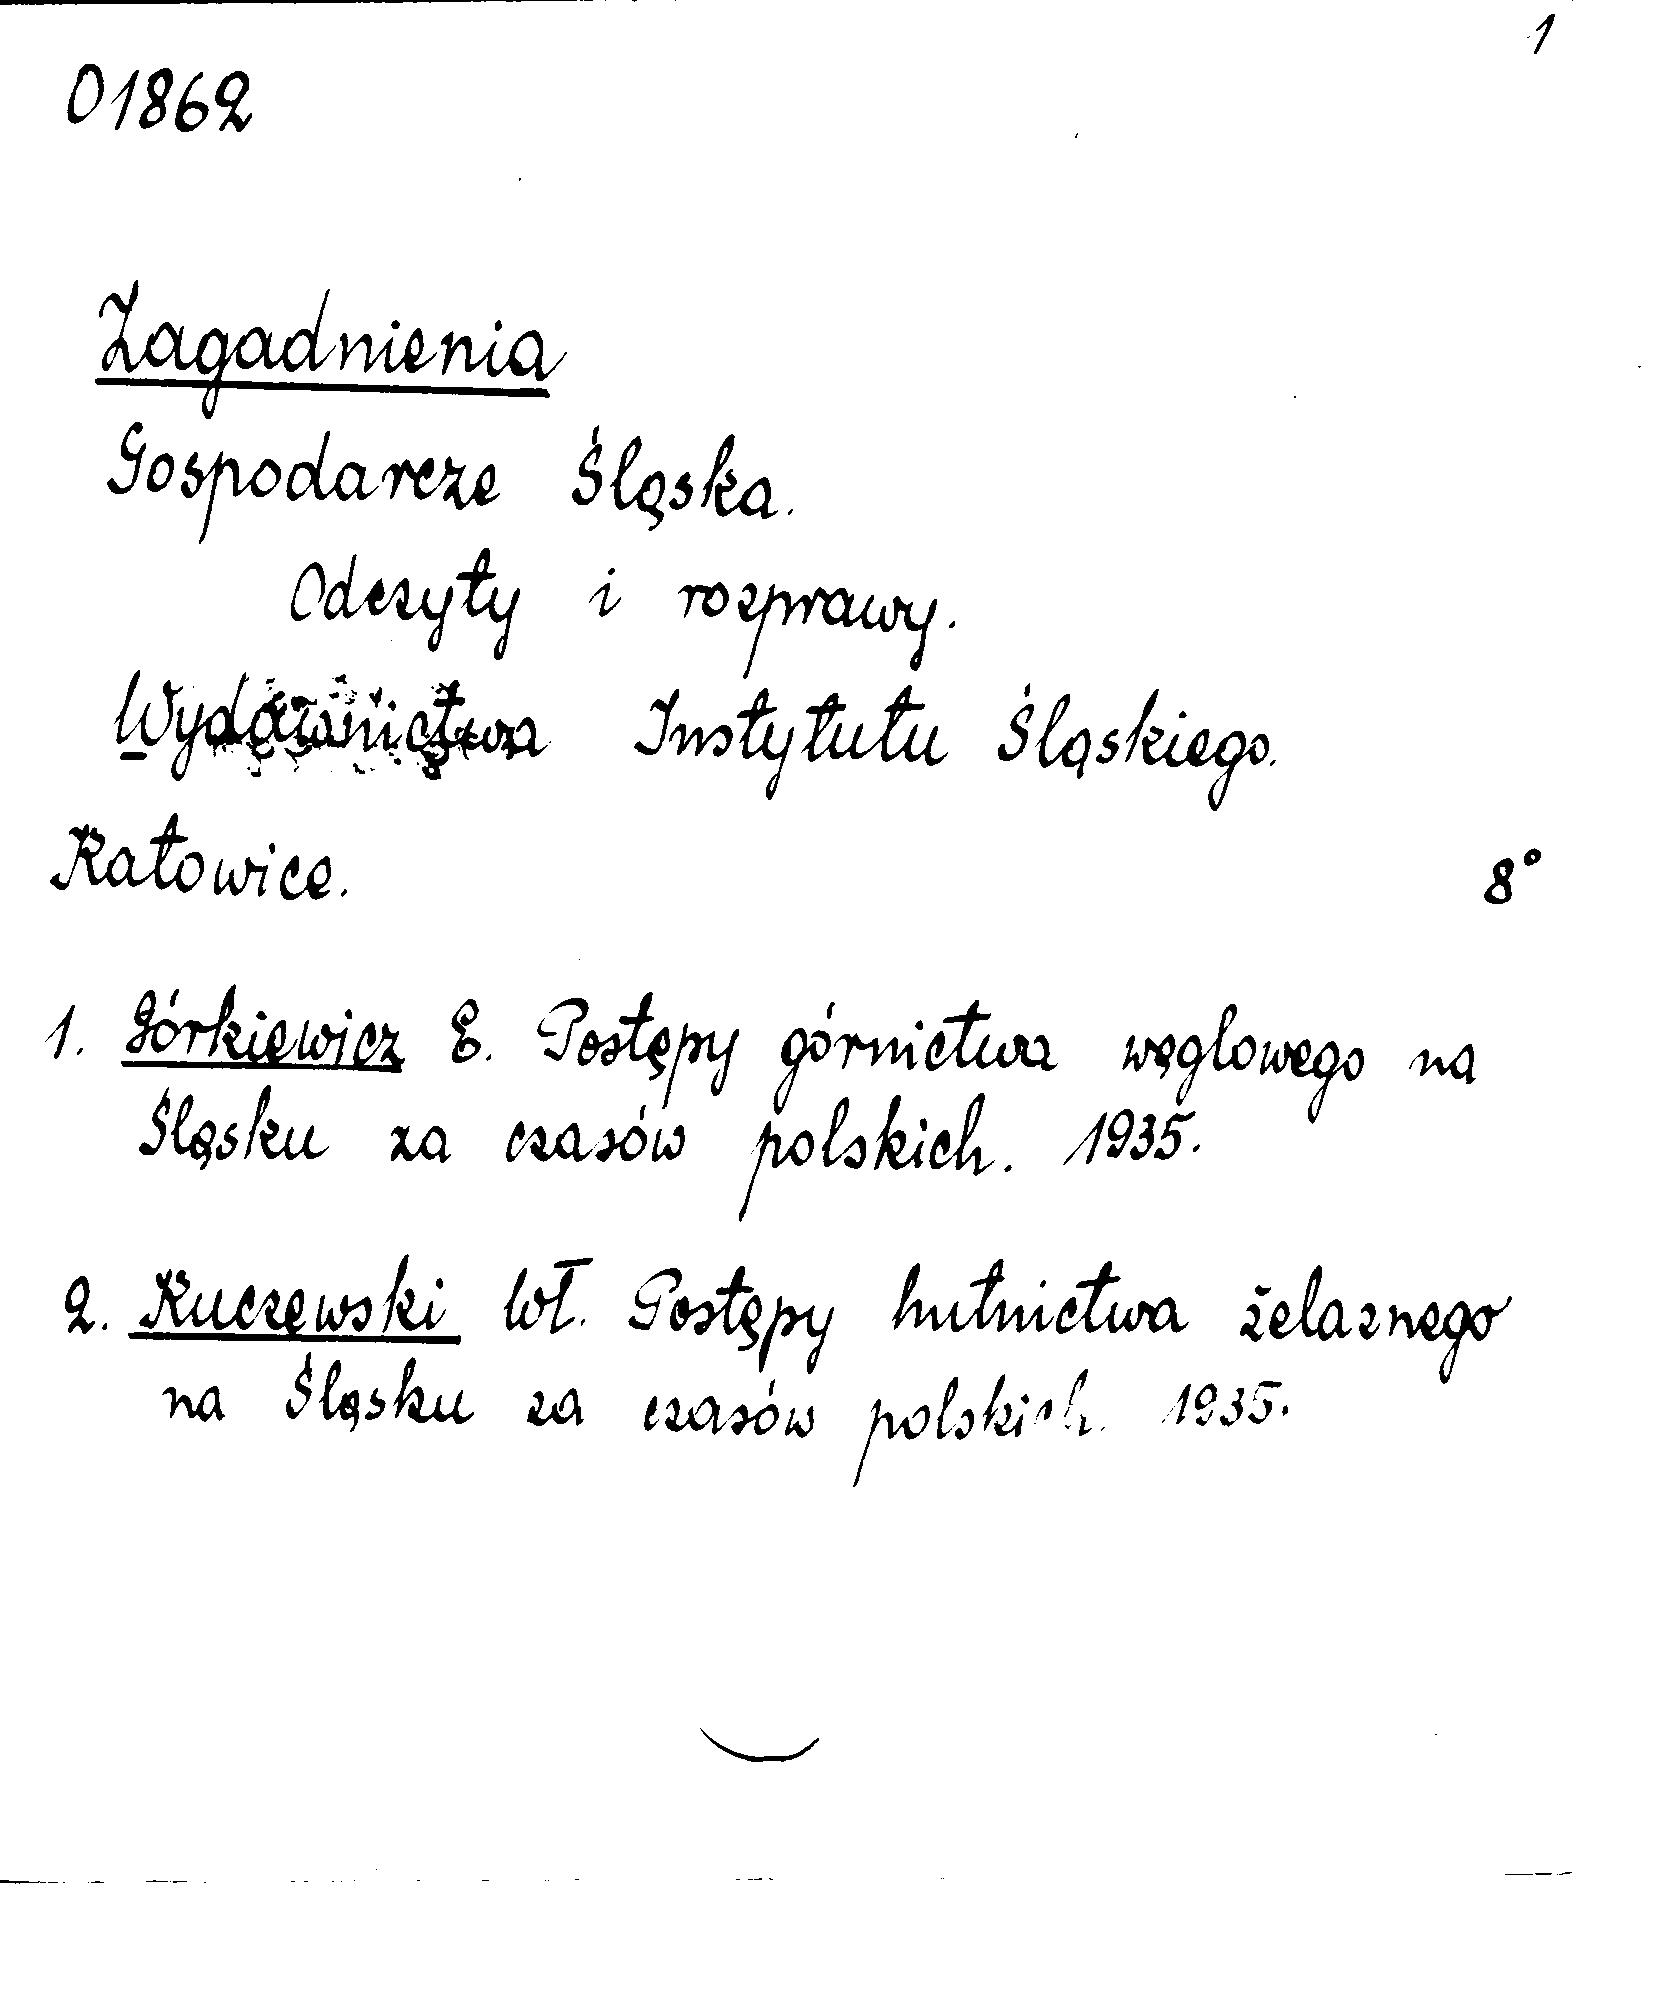 1
01862
Zagadnienia
Gospodarcze Śląska.
Odczyty i rozprawy.
Wydawnictwa Instytutu Śląskiego.
Katowice. 8°
1. Górkiewicz E. Postępy górnictwa węglowego na
Śląsku za czasów polskich. 1935.
2. Kuczewski Wł. Postępy hutnictwa żelaznego
na Śląsku za czasów polskich. 1935.